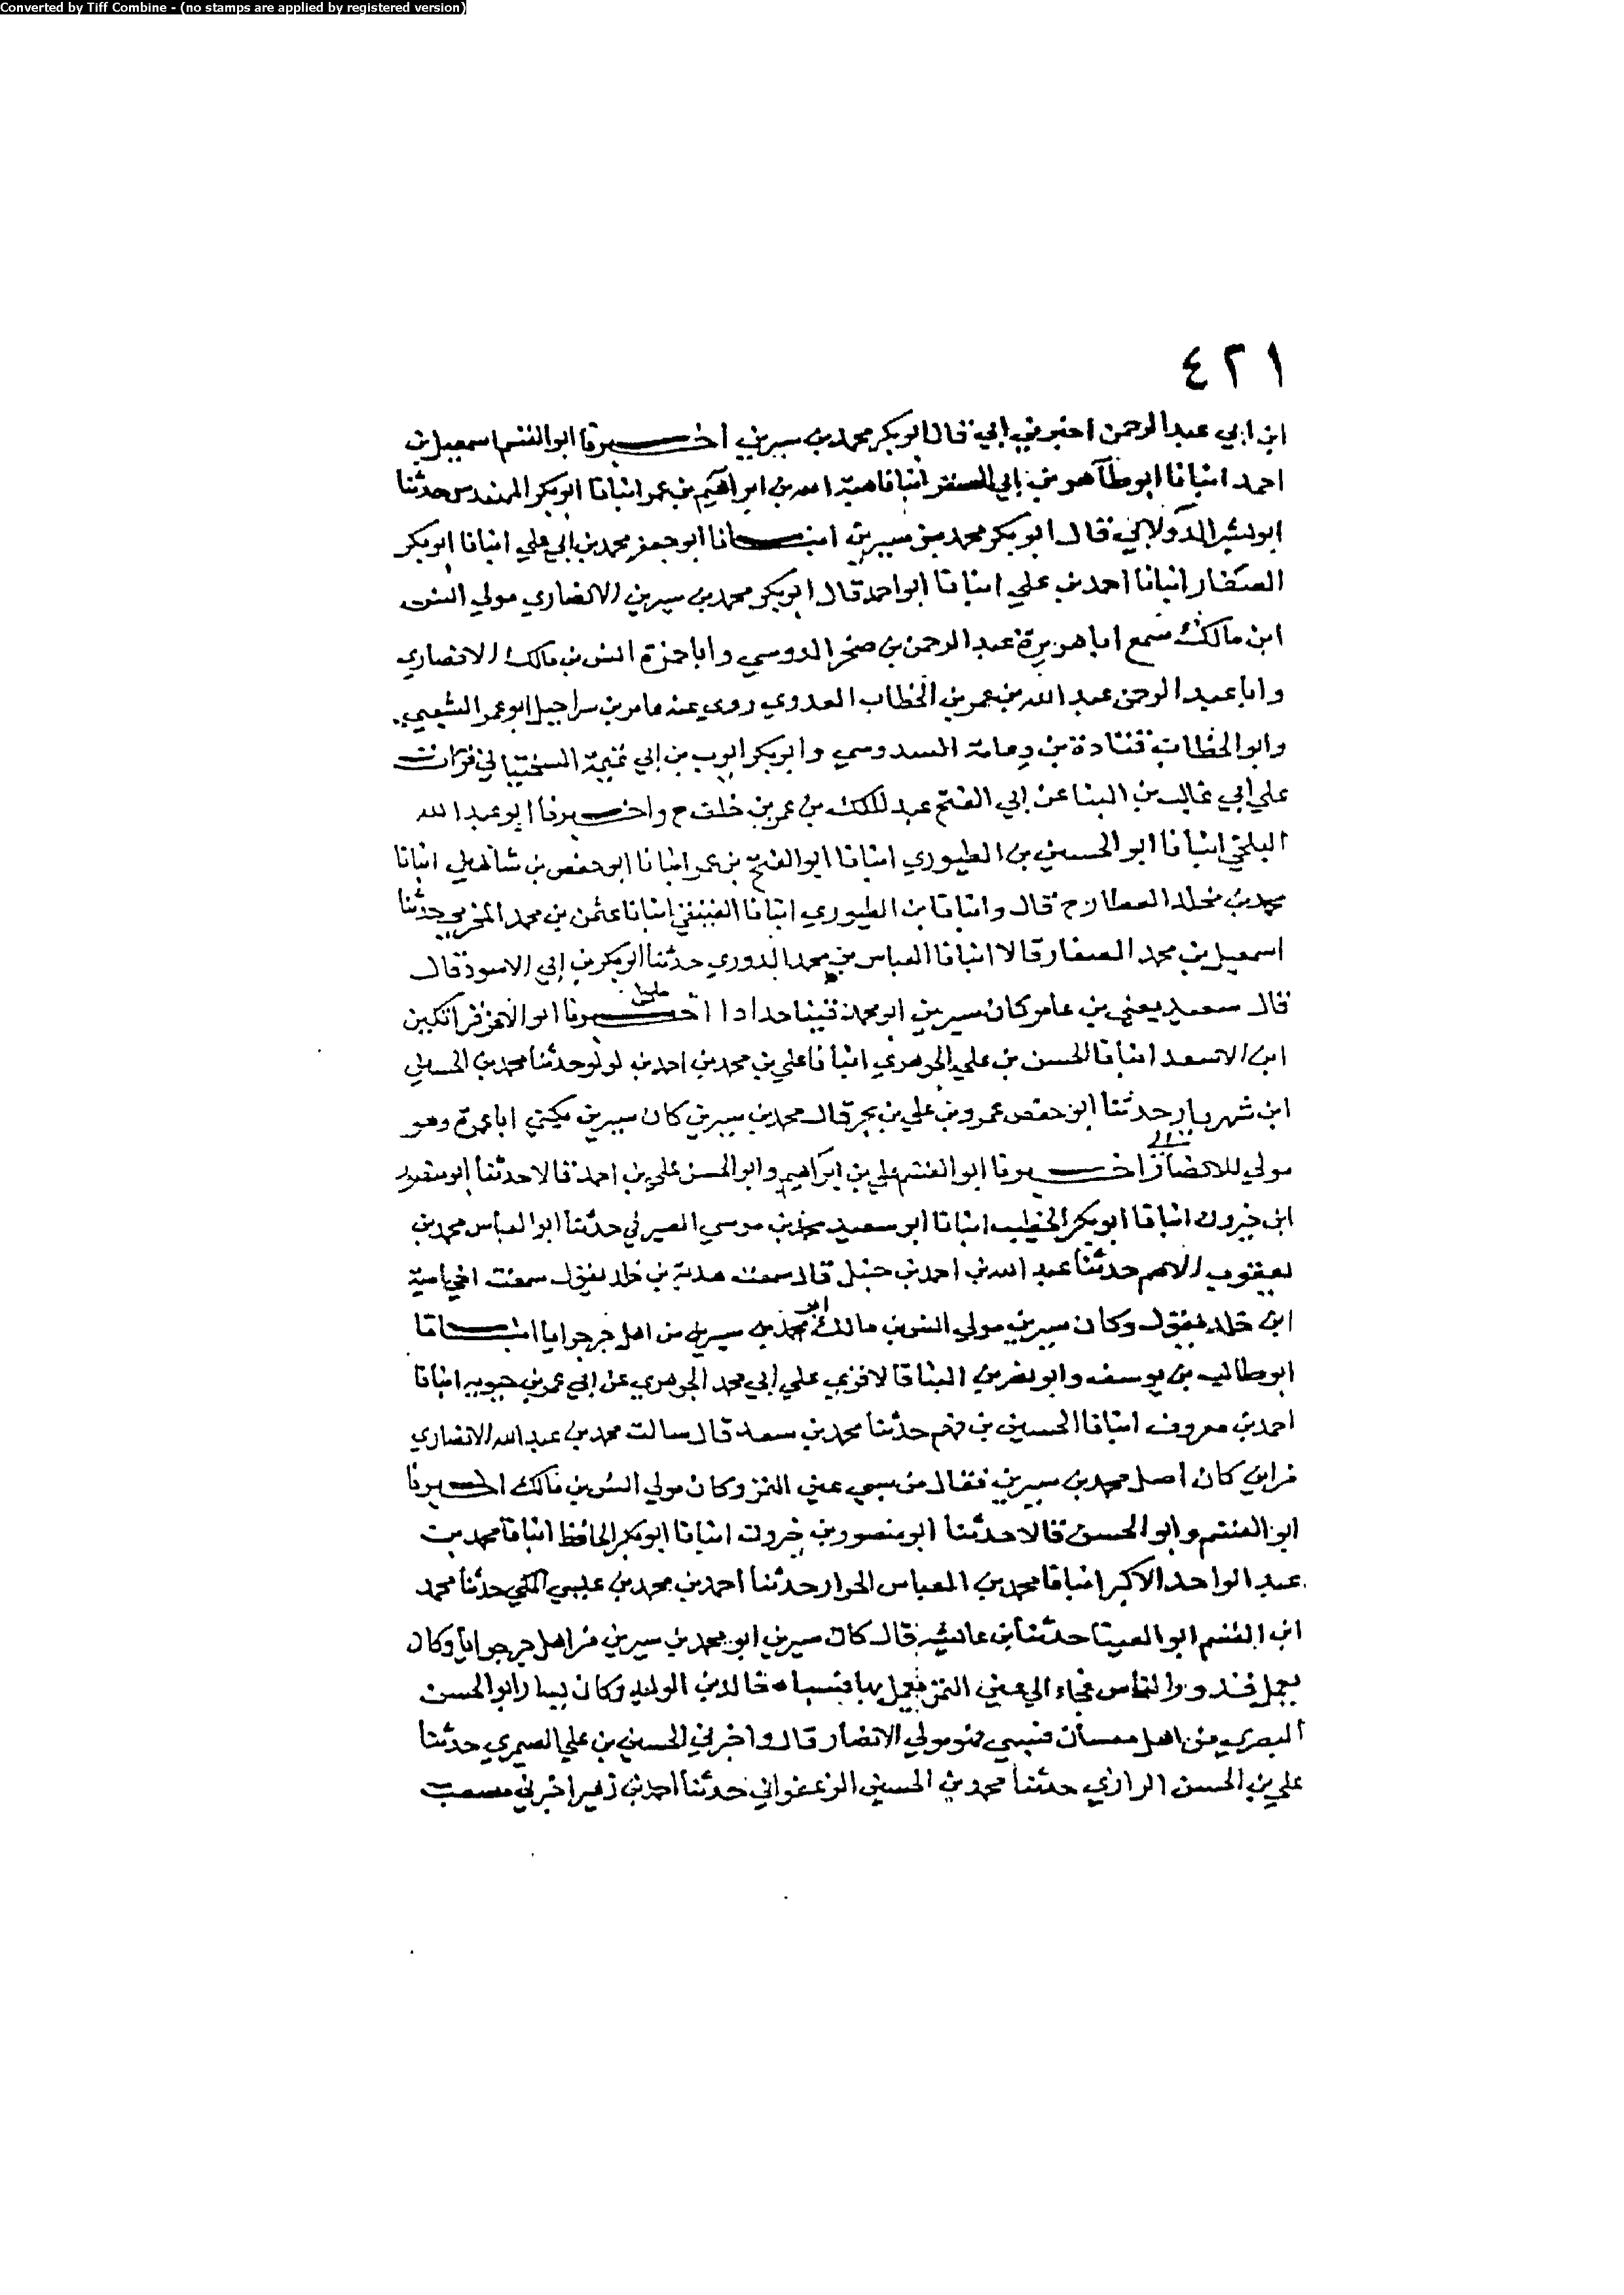 Converted by Tiff Combine - (no stamps are applied by registered version)
٤٢١
ابن ابي عبد الرحمن اخبرني ابي قال ابو بكر محمد بن سيرين اخبرنا ابو القسم اسمعيل بن
احمد انبانا ابو طاهر بن ابي الصقر انبانا هبة الله بن ابراهيم بن عمر انبانا ابو بكر المهندس حدثنا
ابو بشر الدولابي قال ابو بكر محمد بن سيرين انبانا ابو جعفر محمد بن ابي علي انبانا ابو بكر
الصفار انبانا احمد بن علي انبانا ابو احمد قال ابو بكر محمد بن سيرين الانصاري مولي انس
ابن مالك سمع ابا هريرة عبد الرحمن بن صخر الدوسي وابا حمزة انس بن مالك الانصاري
وابا عبد الرحمن عبد الله بن عمر بن الخطاب العدوي روى عنه عامر بن سراحيل ابو عمر الشعبي
وابو الخطاب قتادة بن دعامة السدوسي وابو بكر ايوب بن ابي تميمة السختياني قرات
علي ابي غالب بن البنا عن ابي الفتح عبد الملك بن عمر بن خلف ح واخبرنا ابو عبد الله
البلخي انبانا ابو الحسين بن الطيوري انبانا ابو الفتح بن عمر انبانا ابو حفص بن شاهين انبانا
محمد بن مخلد العطار ح قال وانبانا بن الطيوري انبانا العتيقي انبانا عثمن بن محمد المخرمي حدثنا
اسمعيل بن محمد الصفار قالا انبانا العباس بن محمد الدوري حدثنا ابو بكر بن ابي الاسود قال
قال سعيد يعني بن عامر كان سيرين ابو محمد قينا حدادا اخبرنا ابو الاعز قراتكين
ابن الاسعد انبانا الحسن بن علي الجوهري انبانا علي بن محمد بن احمد بن لولو حدثنا محمد بن الحسين
ابن شهريار حدثنا ابو حفص عمرو بن علي بن بحر قال محمد بن سيرين كان سيرين يكني ابا عمرة وهو
مولي للانصار اخبرنا ابو القسم علي بن ابراهيم وابو الحسن علي بن احمد قالا حدثنا ابو منصور
ابن خيرون انبانا ابو بكر الخطيب انبانا ابو سعيد محمد بن موسي الصيرفي حدثنا ابو العباس محمد بن
يعقوب الاصم حدثنا عبد الله بن احمد بن حنبل قال سمعت هدبة بن خالد يقول سمعت اخي امية
ابن خالد يقول وكان سيرين مولي انس بن مالك ابو محمد بن سيرين من اهل جرجرايا انبانا
ابو طالب بن يوسف وابو نصر بن البنا قالا قري علي ابي محمد الجوهري عن ابي عمر بن حيويه انبانا
احمد بن معروف انبانا الحسين بن فهم حدثنا محمد بن سعد قال سالت محمد بن عبد الله الانصاري
من اين كان اصل محمد بن سيرين فقال من سبي عين التمر وكان مولي انس بن مالك اخبرنا
ابو القسم وابو الحسن قالا حدثنا ابو منصور بن خيرون انبانا ابو بكر الحافظ انبانا محمد بن
عبد الواحد الاكبر انبانا محمد بن العباس الخزاز حدثنا احمد بن محمد بن عيسي المكي حدثنا محمد
ابن القسم ابو العينا حدثنا بن عائشة قال كان سيرين ابو محمد بن سيرين من اهل جرجرايا وكان
يعمل قدور النحاس فجاء الي عين التمر يعمل بها فسباه خالد بن الوليد وكان يسار ابو الحسن
البصري من اهل ميسان فسبي فهو مولي الانصار قال واخبرني الحسين بن علي الصيمري حدثنا
علي بن الحسن الرازي حدثنا محمد بن الحسين الزعفراني حدثنا احمد بن زهير اخبرني مصعب